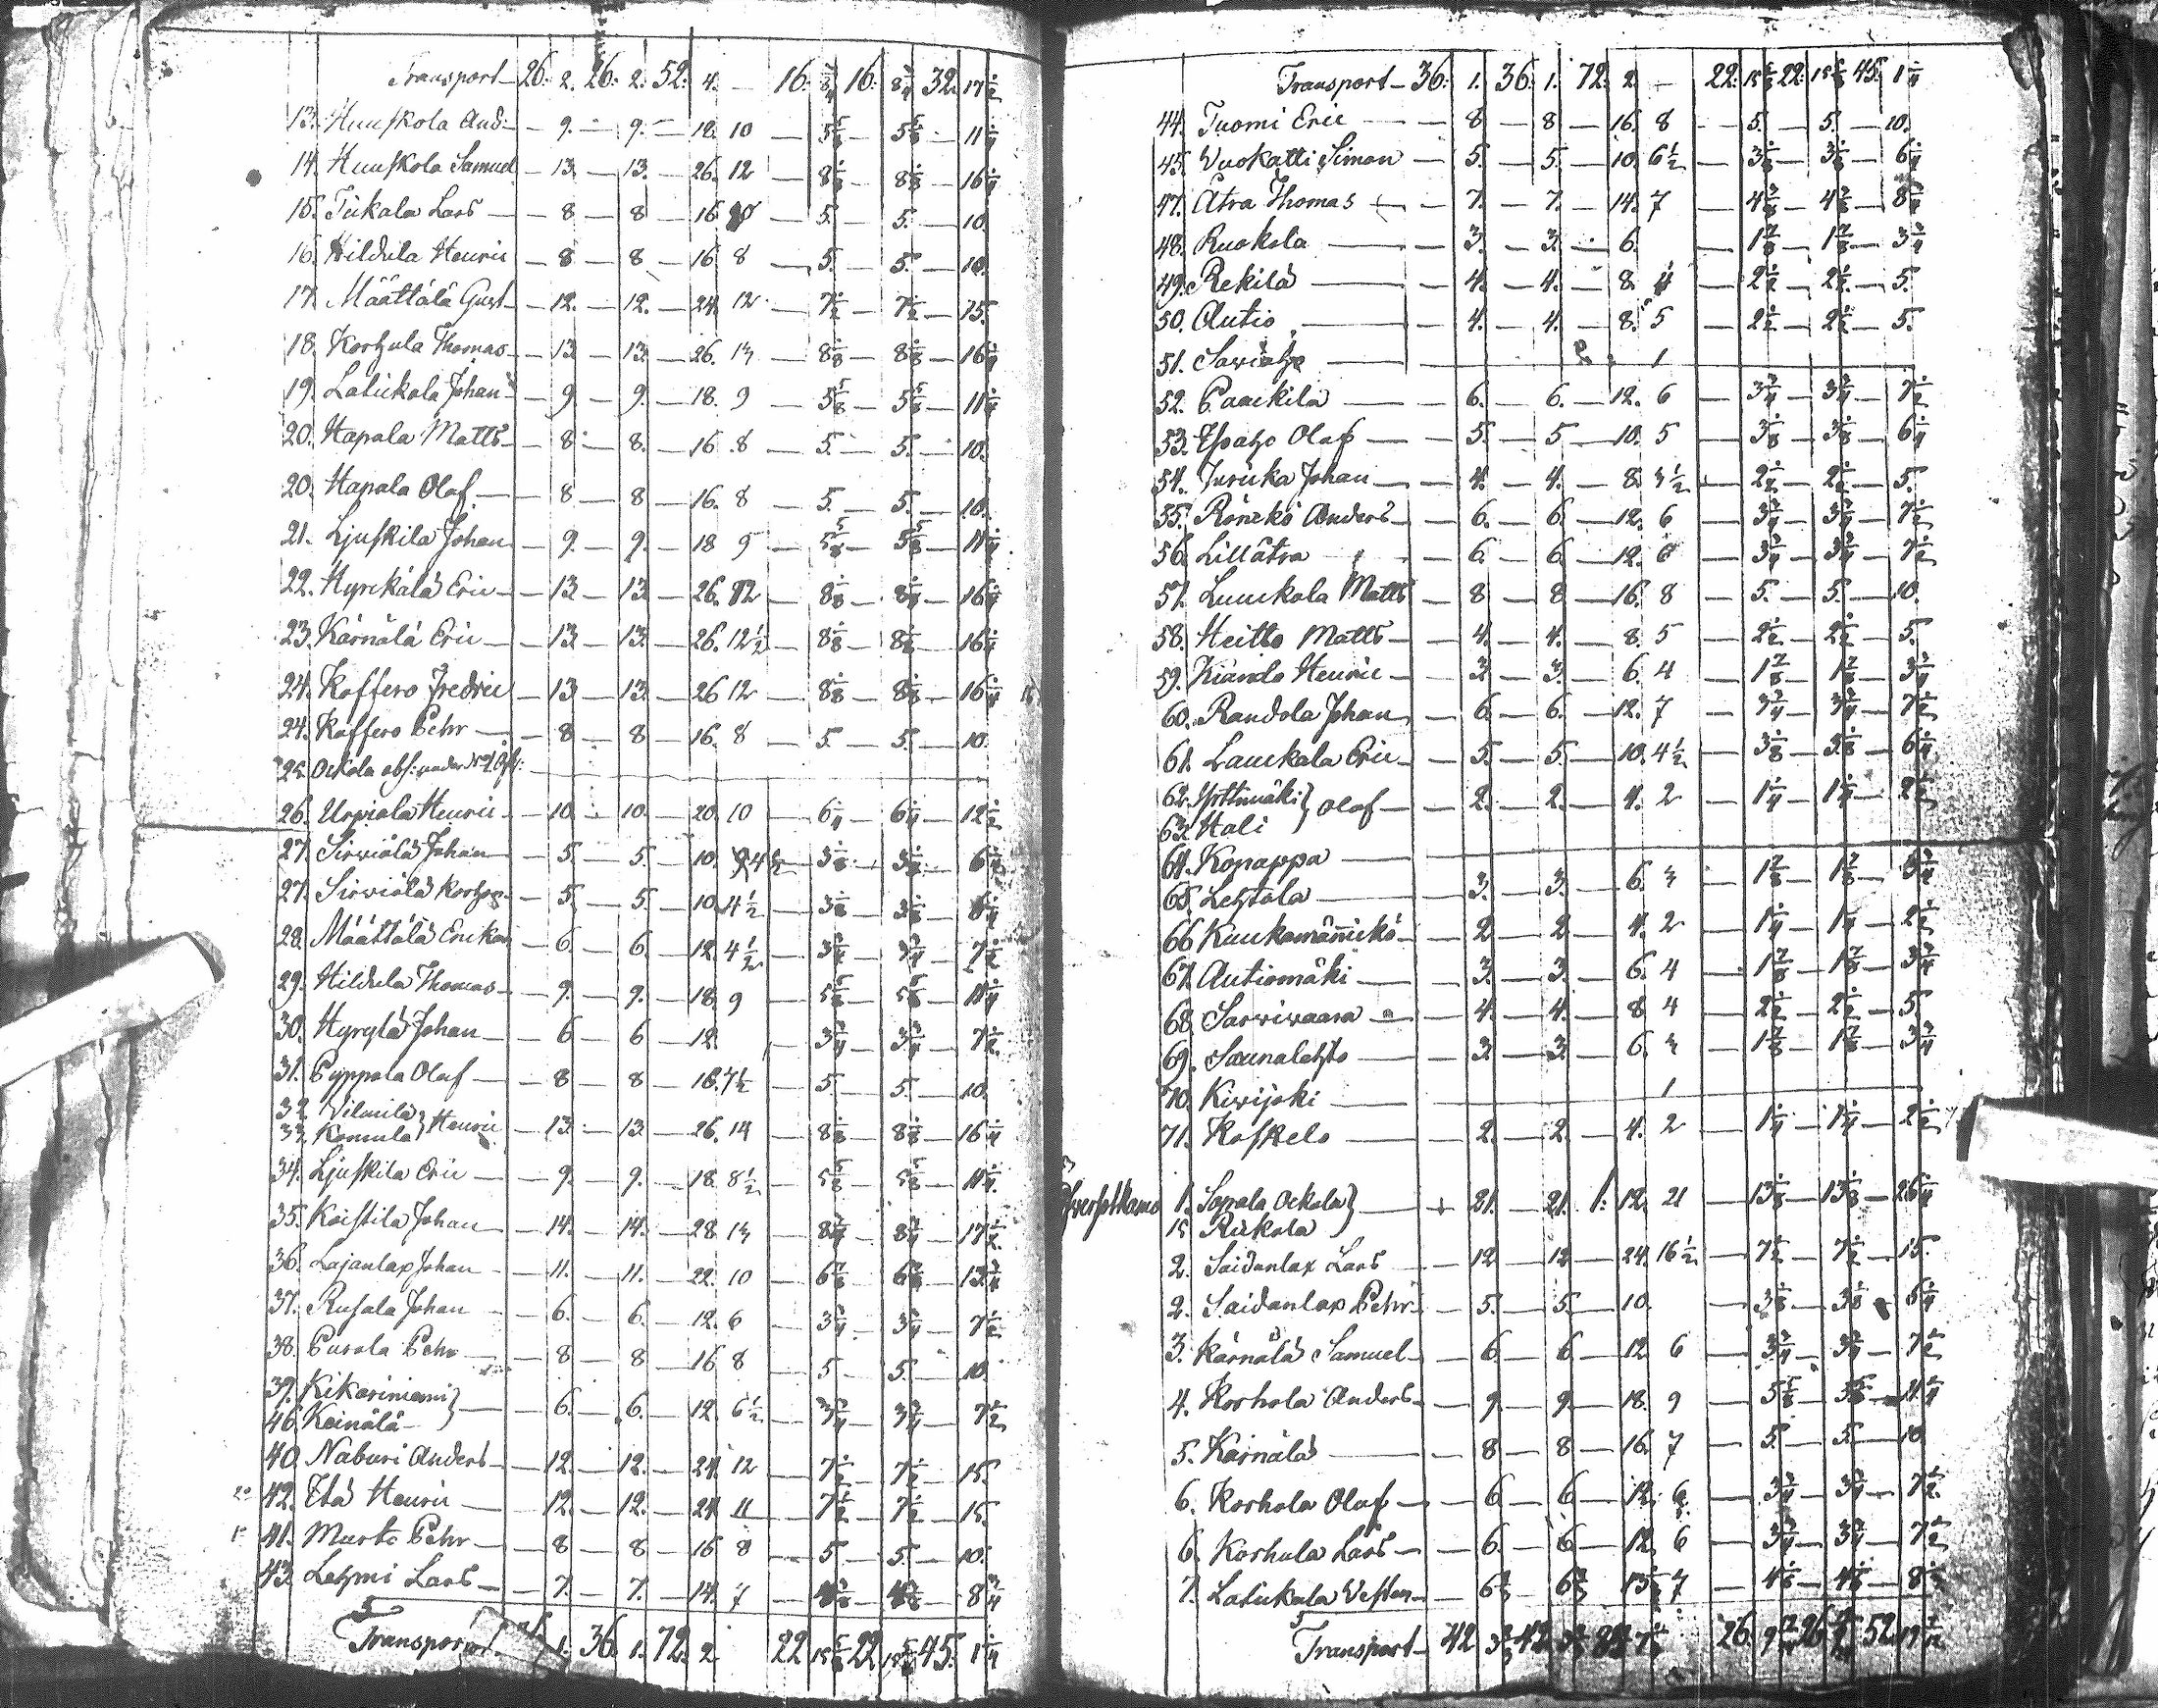 Transport 26. 2. 26. 2. 52. 4. — 16. 8 3/4 16. 8 3/4 32. 17 1/2
13. Huuskola And: — 9. — 9. — 18. 10 — 5 5/8 — 5 5/8 — 11 1/4
14. Huuskola Samuel — 13. — 13. — 26. 12 — 8 1/8 — 8 1/8 — 16 1/4
15. Tikala Lars — 8 — 8 — 16 — 5. — 5. — 10.
16. Hildula Henric — 8 — 8 — 16 8 — 5. — 5. — 10.
17. Määttälä Gust — 12. — 12. — 24. 12 — 7 1/2 — 7 1/2 — 15.
18. Korhula Thomas — 13. — 13. — 26. 13 — 8 1/8 — 8 1/8 — 16 1/4
19. Latukala Johan — 9. — 9. — 18. 9 — 5 5/8 — 5 5/8 — 11 1/4
20. Hapala Matts — 8 — 8. — 16 8 — 5. — 5. — 10.
20. Hapala Olof — 8 — 8 — 16. 8 — 5. — 5. — 10.
21. Ljuskila Johan — 9. — 9. — 18 9 — 5 5/8 — 5 5/8 — 11 1/4
22. Hyrckälä Eric — 13 — 13 — 26. 12 — 8 1/8 — 8 1/8 — 16 1/4
23. Kärnälä Eric — 13 — 13. — 26. 12 1/2 — 8 1/8 — 8 1/8 — 16 1/4
24. Koffero Fredric — 13 — 13 — 26 12 — 8 1/8 — 8 1/8 — 16 1/4
24. Koffero Pehr — 8 — 8 — 16. 8 — 5. — 5. — 10.
25. Ockola obs: under No 1 Öfv:
26. Urpiala Henric — 10 — 10. — 20. 10 — 6 1/4 — 6 1/4 — 12 1/2
27. Sirviälä Johan — 5 — 5. — 10. 4 1/2 — 3 1/8 — 3 1/8 — 6 1/4
27. Sirviälä — 5 — 5. — 10. 4 1/2 — 3 1/8 — 3 1/8 — 6 1/4
28. Määttälä — 6 — 6. — 12. 4 1/2 — 3 3/4 — 3 3/4 — 7 1/2
29. Hildula Thomas — 9. — 9. — 18. 9 — 5 5/8 — 5 5/8 — 11 1/4
30. Hyrylä Johan — 6 — 6 — 12. — 3 3/4 — 3 3/4 — 7 1/2
31. Pyppola Olof — 8 — 8 — 16. 7 1/2 — 5 — 5. — 10.
32. Vilmilä } Henric — 13. — 13. — 26. 14 — 8 1/8 — 8 1/8 — 16 1/4
33. Komula
34. Ljuskila Eric — 9. — 9. — 18. 8 1/2 — 5 5/8 — 5 5/8 — 11 1/4
35. Koistila Johan — 14. — 14. — 28. 13 — 8 3/4 — 8 3/4 — 17 1/2
36. Lajanlax Johan — 11. — 11. — 22. 10 — 6 7/8 — 6 7/8 — 13 3/4
37. Rusala Johan — 6. — 6. — 12. 6 — 3 3/4 — 3 3/4 — 7 1/2
38. Purola Pehr — 8 — 8 — 16 8 — 5 — 5. — 10.
39. Kikariniemi } — 6. — 6. — 12. 6 1/2 — 3 3/4 — 3 3/4 — 7 1/2
46. Keinälä
40. Naburi Anders — 12. — 12. — 24. 12 — 7 1/2 — 7 1/2 — 15.
42. Henric — 12. — 12. — 24. 11 — 7 1/2 — 7 1/2 — 15.
41. Murto Pehr — 8 — 8 — 16 8 — 5 — 5. — 10.
43. Lehmi Lars — 7. — 7. — 14. 7 — 4 3/8 — 4 3/8 — 8 3/4
Transport 1. 36. 1. 72. 2. 22 15 5/8 22. 15 5/8 45. 1 1/4
Transport — 36. 1. 36. 1. 72. 2. — 22. 15 5/8 22. 15 5/8 45. 1 1/4
44. Tuomi Eric — 8 — 8 — 16. 8 — 5. — 5. — 10.
45. Vuokatti Simon — 5. — 5. — 10. 6 1/2 — 3 1/8 — 3 1/8 — 6 1/4
47. Atra Thomas — 7. — 7. — 14. 7 — 4 3/8 — 4 3/8 — 8 3/4
48. Ruokola — 3. — 3. — 6. — 1 7/8 — 1 7/8 — 3 3/4
49. Rekilä — 4. — 4. — 8 4 — 2 1/2 — 2 1/2 — 5.
50. Autio — 4. — 4. — 8. 5 — 2 1/2 — 2 1/2 — 5.
51. — 1
52. Paackila — 6. — 6. — 12. 6 — 3 3/4 — 3 3/4 — 7 1/2
53. Olof — 5. — 5 — 10. 5 — 3 1/8 — 3 1/8 — 6 1/4
54. Jurucka Johan — 4. — 4. — 8. 3 1/2 — 2 1/2 — 2 1/2 — 5.
55. Röncko Anders — 6. — 6 — 12. 6 — 3 3/4 — 3 3/4 — 7 1/2
56. Lillåtra — 6. — 6. — 12. 6 — 3 3/4 — 3 3/4 — 7 1/2
57. Luuckola Matts — 8 — 8 — 16. 8 — 5. — 5. — 10.
58. Heitto Matts — 4. — 4. — 8. 5 — 2 1/2 — 2 1/2 — 5.
59. Kiando Henric — 3. — 3. — 6. 4 — 1 7/8 — 1 7/8 — 3 3/4
60. Randola Johan — 6. — 6. — 12. 7 — 3 3/4 — 3 3/4 — 7 1/2
61. Lauckala Eric — 5. — 5. — 10. 4 1/2 — 3 1/8 — 3 1/8 — 6 1/4
62. } Olof — 2. — 2. — 4. 2 — 1 1/4 — 1 1/4 — 2 1/2
63. Hali
64. Konappa
65. Lehtola — 3. — 3. — 6. 3 — 1 7/8 — 1 7/8 — 3 3/4
66. Kuukamännickö — 2 — 2 — 4. 2 — 1 1/4 — 1 1/4 — 2 1/2
67. Autiomäki — 3. — 3. — 6. 4 — 1 7/8 — 1 7/8 — 3 3/4
68. Sarvivaara — 4. — 4. — 8 4 — 2 1/2 — 2 1/2 — 5
69. Saunalehto — 3. — 3. — 6. 3 — 1 7/8 — 1 7/8 — 3 3/4
70. Kivijoki — 1
71. Koskelo — 2. — 2. — 4. 2 — 1 1/4 — 1 1/4 — 2 1/2
1. Sopala Ockola } — 21. — 21. 1. 12. 21 — 13 1/8 — 13 1/8 — 26 1/4
15 Rickola
2. Saidanlax Lars — 12 — 12 — 24. 16 1/2 — 7 1/2 — 7 1/2 — 15.
2. Saidanlax Pehr — 5. — 5. — 10. — 3 1/8 — 3 1/8 — 6 1/4
3. Kärnälä Samuel — 6. — 6. — 12. 6 — 3 3/4 — 3 3/4 — 7 1/2
4. Korhola Anders — 9 — 9 — 18. 9 — 5 5/8 — 5 5/8 — 11 1/4
5. Kärnälä — 8 — 8 — 16. 7 — 5. — 5. — 10
6. Korhola Olof — 6 — 6 — 12. 6 — 3 3/4 — 3 3/4 — 7 1/2
6. Korhula Lars — 6. — 6 — 12. 6 — 3 3/4 — 3 3/4 — 7 1/2
7. Latukala — 6 2/3 — 6 2/3 — 13 1/3 7
Transport 42 26. 52.